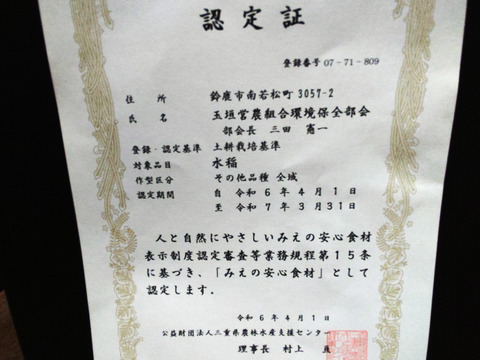 認定証
登録番号 07-71-809
住所 鈴鹿市南若松町3057-2
氏名 玉垣営農組合環境保全部会
部会長 三田 憲一
登録・認定基準 土耕栽培基準
対象品目 水稲
作型区分 その他品種 全域
認定期間 自 令和 6年 4月 1日
至 令和 7年 3月31日
人と自然にやさしいみえの安心食材
表示制度認定審査等業務規程第15条
に基づき、「みえの安心食材」として
認定します。
令和 6年 4月 1日
公益財団法人三重県農林水産支援センター
理事長 村上 亘